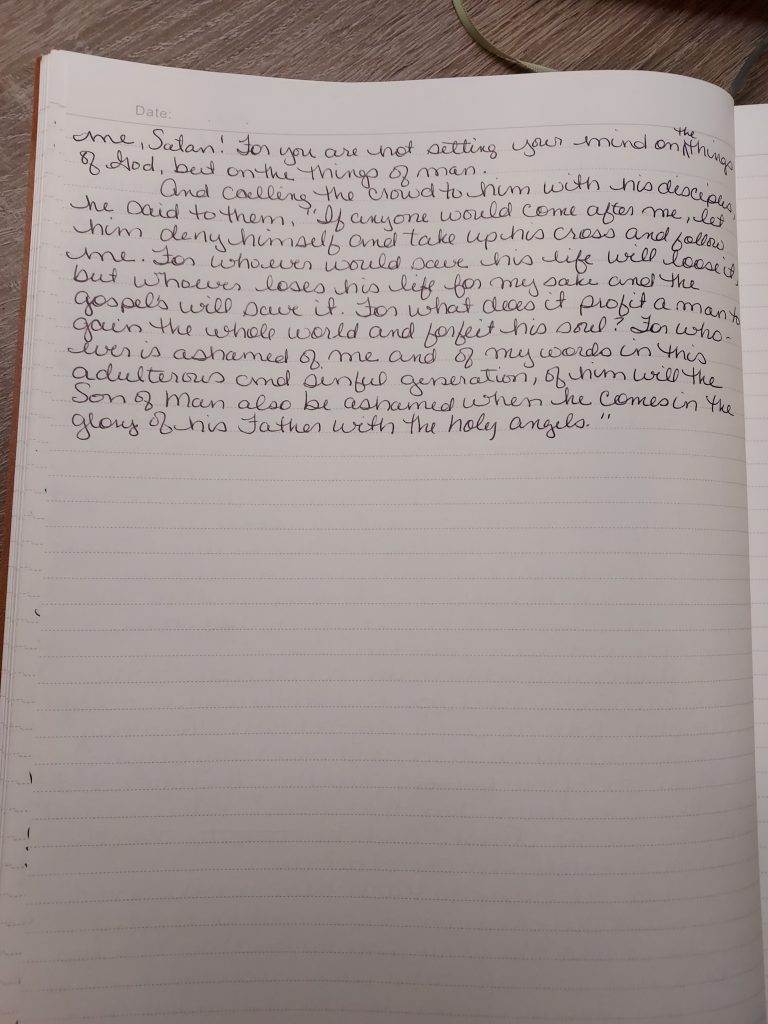 Date:
the
me, Satan! For you are not setting your mind on things
of God, but on the things of man.
And calling the crowd to him with his disciples,
he said to them, "If anyone would come after me, let
him deny himself and take up his cross and follow
me. For whoever would save his life will loose it,
but whoever loses his life for my sake and the
gospels will save it. For what does it profit a man to
gain the whole world and forfeit his soul? For who-
ever is ashamed of me and of my words in this
adulterous and sinful generation, of him will the
Son of Man also be ashamed when he comes in the
glory of his Father with the holy angels."